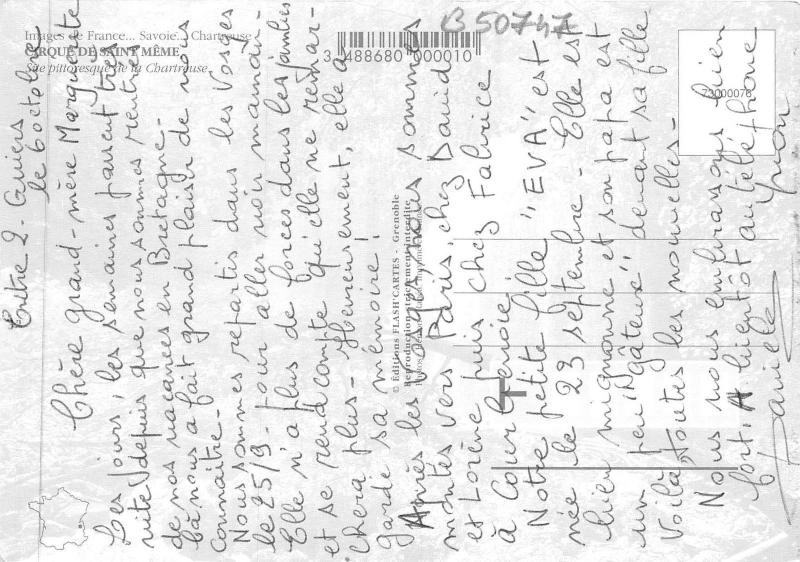 Images de France... Savoie... Chartreuse
CIRQUE DE SAINT MÊME
Site pittoresque de la Chartreuse
3 488680 000010
B50747
73000076
© Éditions FLASH'CARTES - Grenoble
Reproduction strictement interdite
Entre 2 Guiers
le 6 octobre
Chère grand-mère Marguerite
Les jours, les semaines passent très
vite depuis que nous sommes rentrés
de nos vacances en Bretagne.
Cà nous a fait grand plaisir de vous
connaître.
Nous sommes repartis dans les Vosges
le 25/9 pour aller voir maman.
Elle n'a plus de forces dans les jambes
et se rend compte qu'elle ne remar-
chera plus. Heureusement, elle a
gardé sa mémoire!
Après les Vosges nous sommes
montés vers Paris chez David
et Lorène puis chez Fabrice
à Courbevoie.
Notre petite fille "EVA" est
née le 23 septembre. Elle est
bien mignonne et son papa est
un peu "gâteux" devant sa fille
Voilà toutes les nouvelles.
Nous vous embrassons bien
fort. A bientôt au téléphone
Danielle Yvon